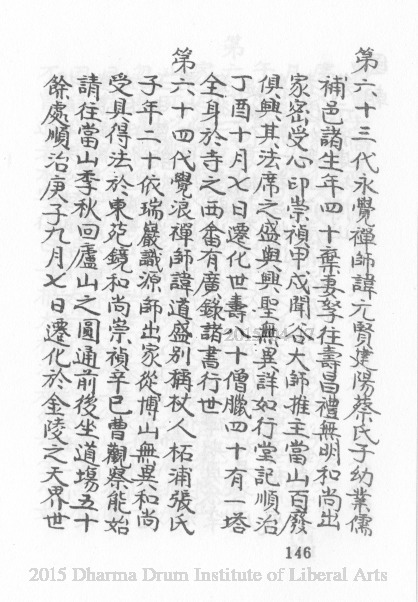 第六十三代永覺禪師諱元賢建陽蔡氏子幼業儒
補邑諸生年四十棄妻孥往壽昌禮無明和尚出
家密受心印崇禎甲戌聞谷大師推主當山百廢
俱興其法席之盛與興聖無異詳如行堂記順治
丁酉十月七日遷化世壽八十僧臘四十有一塔
全身於寺之西畬有廣錄諸書行世
第六十四代覺浪禪師諱道盛別稱杖人柘浦張氏
子年二十依瑞巖識源師出家從博山無異和尚
受具得法於東苑鏡和尚崇禎辛巳曹觀察能始
請往當山季秋回廬山之圓通前後坐道塲五十
餘處順治庚子九月七日遷化於金陵之天界世
146
2015 Dharma Drum Institute of Liberal Arts